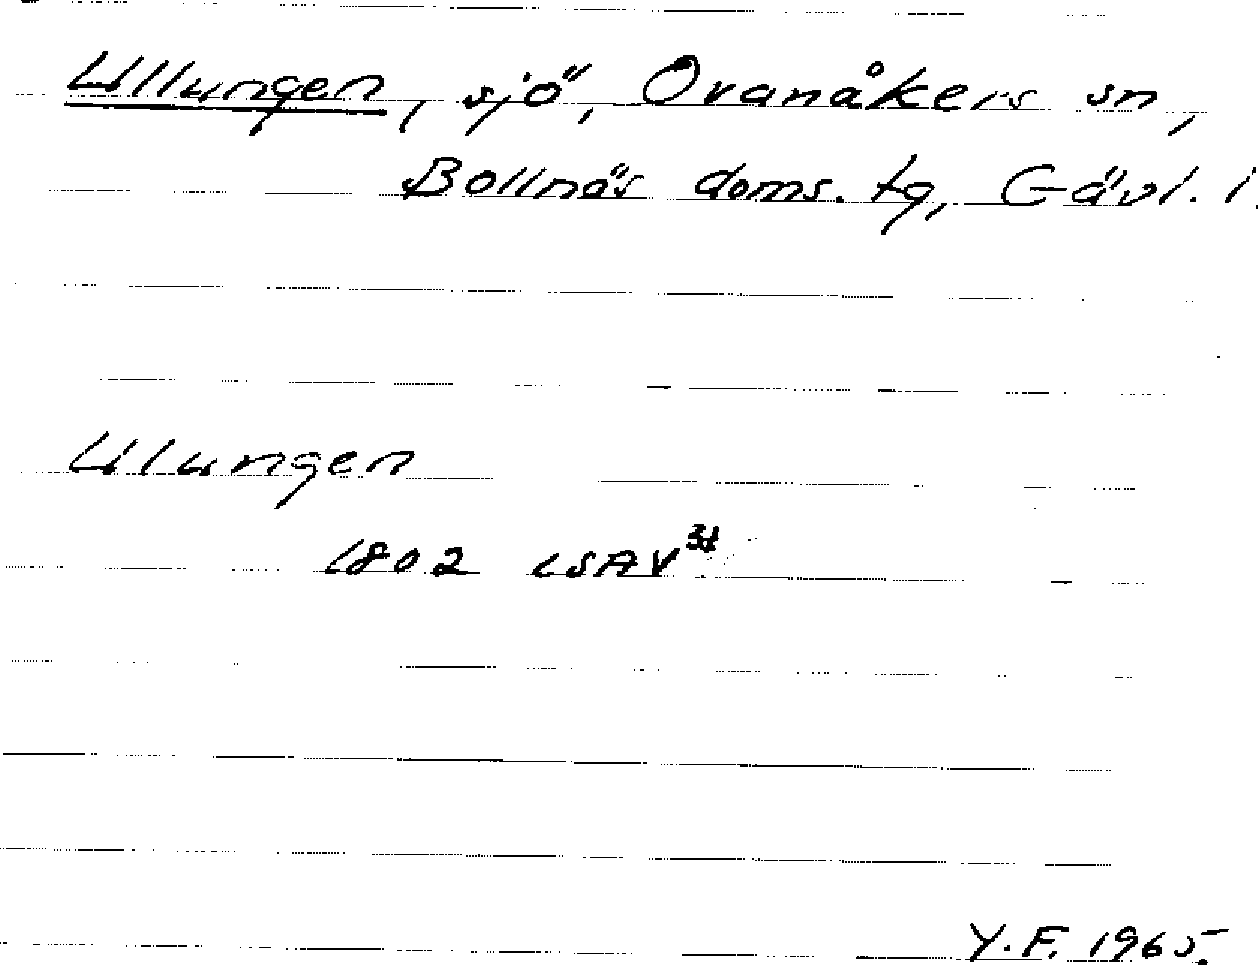 Ullungen, sjö, Ovanåkers sn,
Bollnäs doms. tg, Gävl. l.
Ulungen
1802 LSA V
Y.F. 1965.